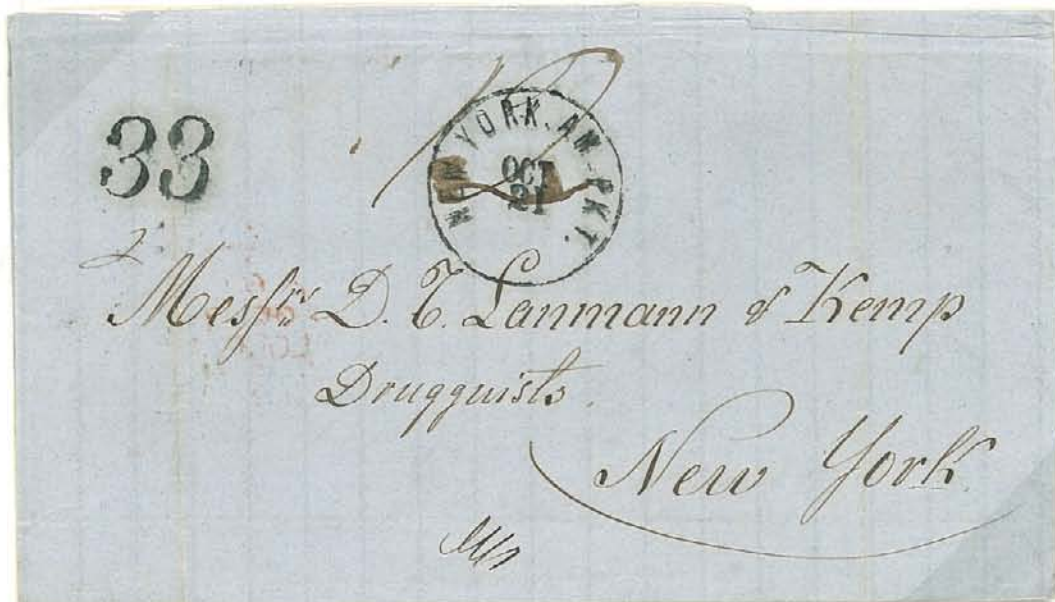 33
NEW YORK. AM. PKT.
OCT
21
Messrs D. T. Lanmann & Kemp
Drugguists.
New York